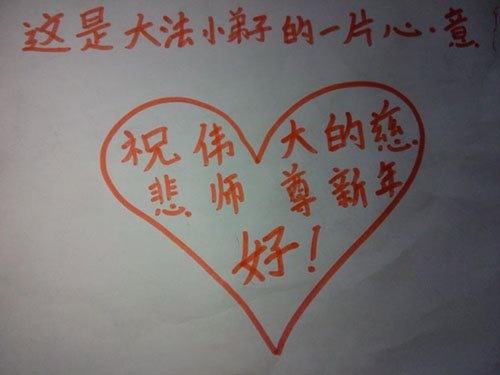 这是大法小弟子的一片心·意
祝伟大的慈
悲师尊新年
好!